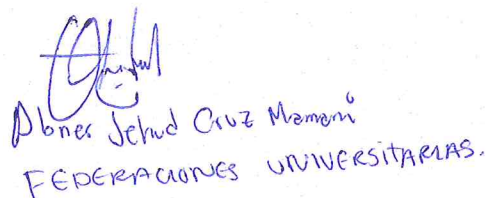 Abner Jehud Cruz Mamani
FEDERACIONES UNIVERSITARIAS.